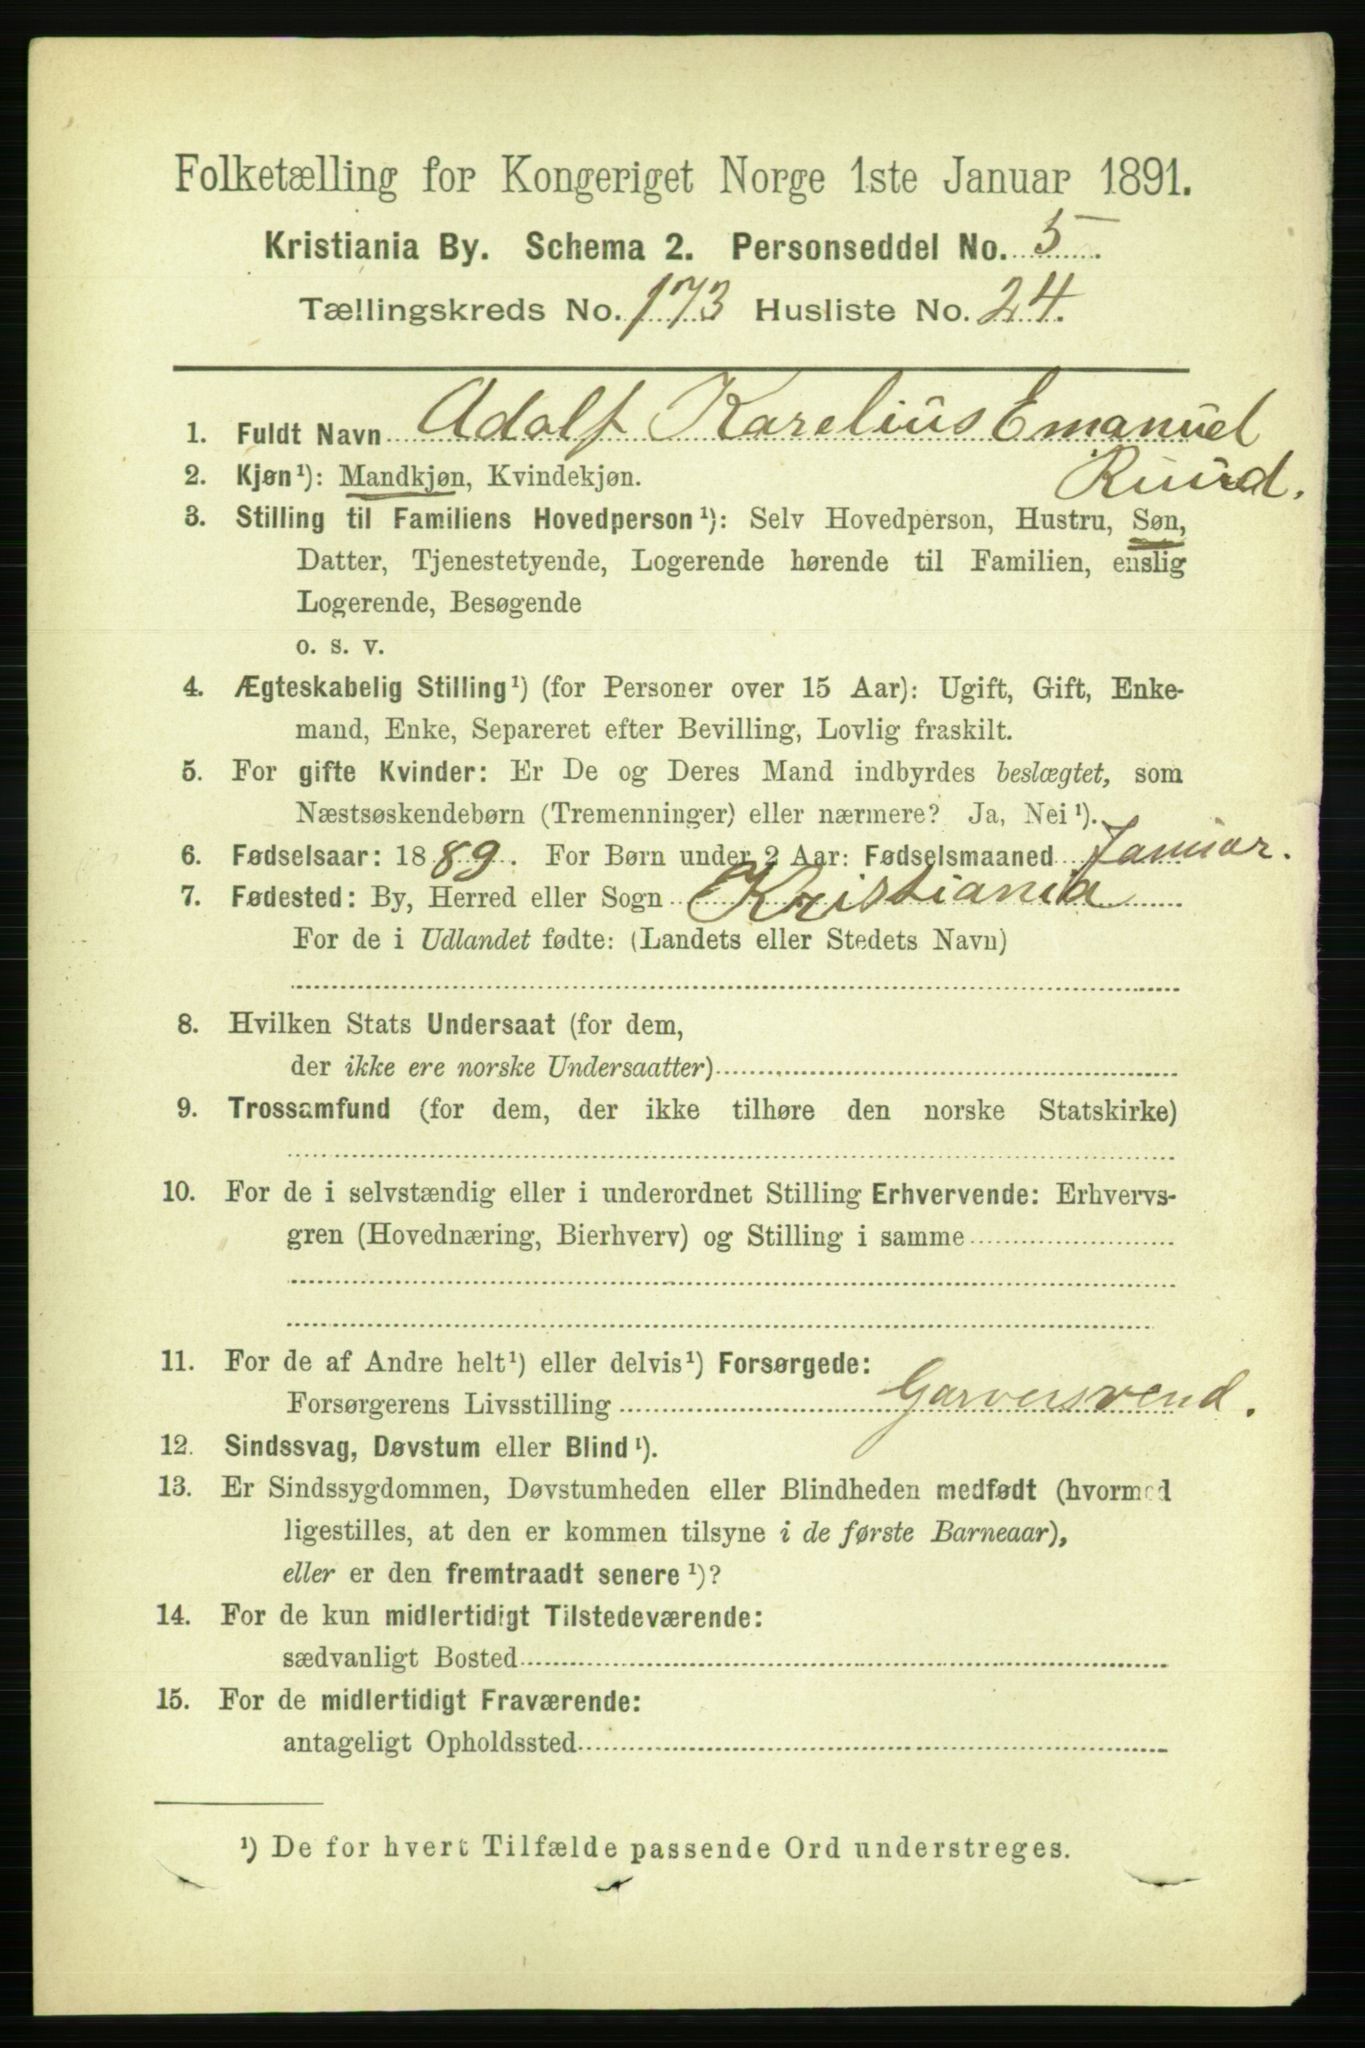 Folketælling for Kongeriget Norge 1ste Januar 1891.
Kristiania By. Schema 2. Personseddel No. 5
Tællingskreds No. 173 Husliste No. 24.
1. Fuldt Navn Adolf Karelius Emanuel
Ruud.
2. Kjøn¹): Mandkjøn, Kvindekjøn.
3. Stilling til Familiens Hovedperson¹): Selv Hovedperson, Hustru, Søn,
Datter, Tjenestetyende, Logerende hørende til Familien, enslig
Logerende, Besøgende
o. s. v.
4. Ægteskabelig Stilling¹) (for Personer over 15 Aar): Ugift, Gift, Enke-
mand, Enke, Separeret efter Bevilling, Lovlig fraskilt.
5. For gifte Kvinder: Er De og Deres Mand indbyrdes beslægtet, som
Næstsøskendebørn (Tremenninger) eller nærmere? Ja, Nei¹).
6. Fødselsaar: 1889. For Børn under 2 Aar: Fødselsmaaned Januar.
7. Fødested: By, Herred eller Sogn Kristiania
For de i Udlandet fødte: (Landets eller Stedets Navn)
8. Hvilken Stats Undersaat (for dem,
der ikke ere norske Undersaatter)
9. Trossamfund (for dem, der ikke tilhøre den norske Statskirke)
10. For de i selvstændig eller i underordnet Stilling Erhvervende: Erhvervs-
gren (Hovednæring, Bierhverv) og Stilling i samme
11. For de af Andre helt¹) eller delvis¹) Forsørgede:
Forsørgerens Livsstilling Garversvend.
12. Sindssvag, Døvstum eller Blind¹).
13. Er Sindssygdommen, Døvstumheden eller Blindheden medfødt (hvormed
ligestilles, at den er kommen tilsyne i de første Barneaar),
eller er den fremtraadt senere¹)?
14. For de kun midlertidigt Tilstedeværende:
sædvanligt Bosted
15. For de midlertidigt Fraværende:
antageligt Opholdssted
¹) De for hvert Tilfælde passende Ord understreges.